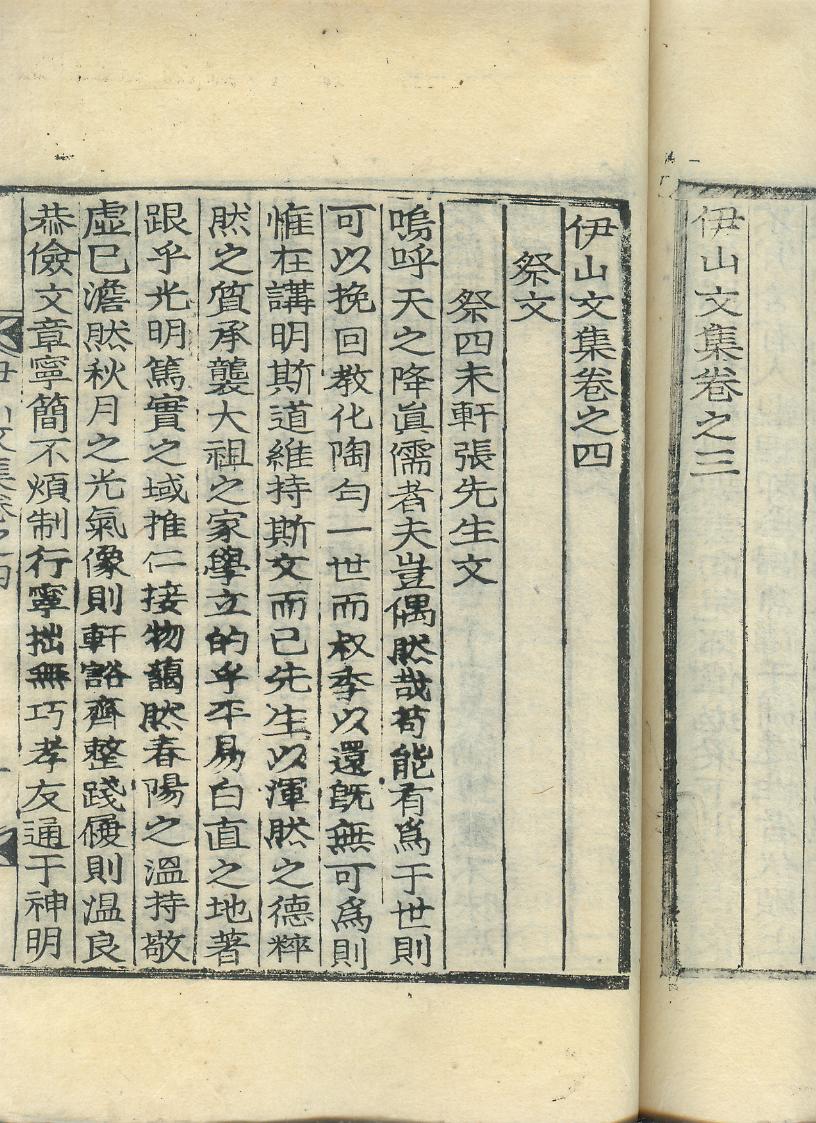 伊山文集卷之三
伊山文集卷之四
祭文
祭四未軒張先生文
嗚呼天之降眞儒者夫豈偶然哉苟能有爲于世則
可以挽回敎化陶匀一世而叔季以還旣無可爲則
惟在講明斯道維持斯文而已先生以渾然之德粹
然之質承襲大祖之家學立的乎平易白直之地著
跟乎光明篤實之域推仁接物藹然春陽之溫持敬
虛已澹然秋月之光氣像則軒豁齊整踐履則温良
恭儉文章寧簡不煩制行寧拙無巧孝友通于神明